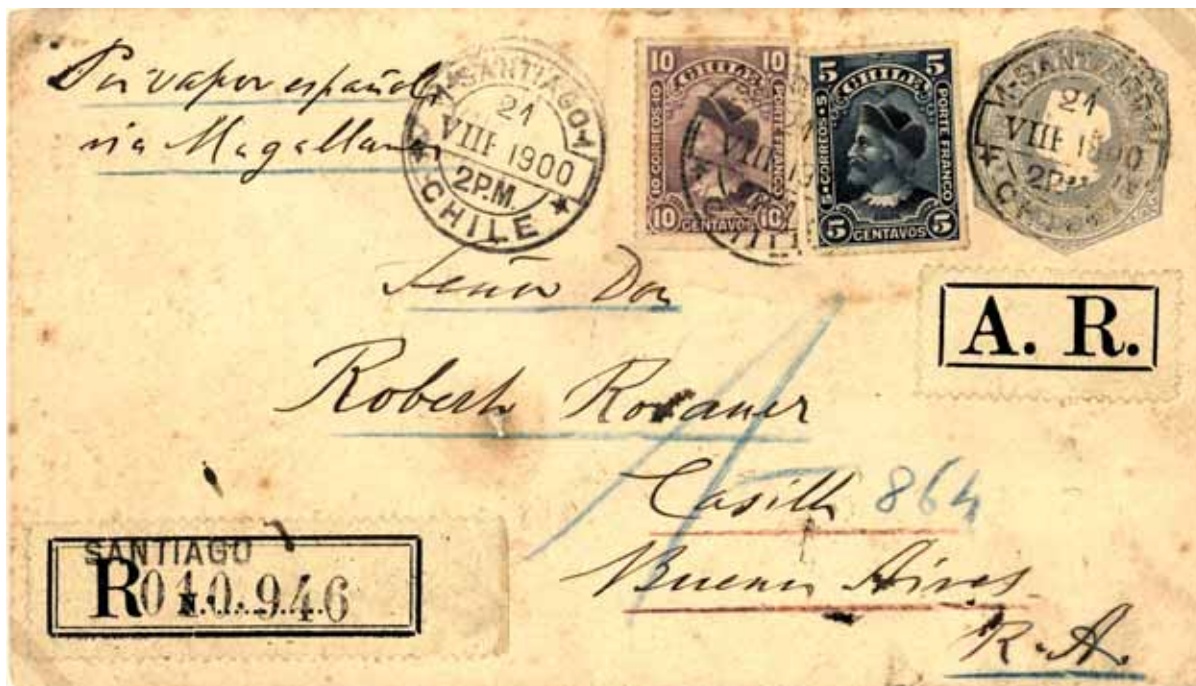 Por vapor español
via Magallanes
SANTIAGO
21
VIII 1900
2P.M.
CHILE
10 10
CHILE
10·CORREOS·10
PORTE FRANCO
10 CENTAVOS 10
5 5
CHILE
5·CORREOS·5
PORTE FRANCO
5 CENTAVOS 5
SANTIAGO
21
VIII 1900
2P.M.
Señor Don
A. R.
Robert
Casilla 864
Buenos Aires
R. A.
SANTIAGO
R 040.946